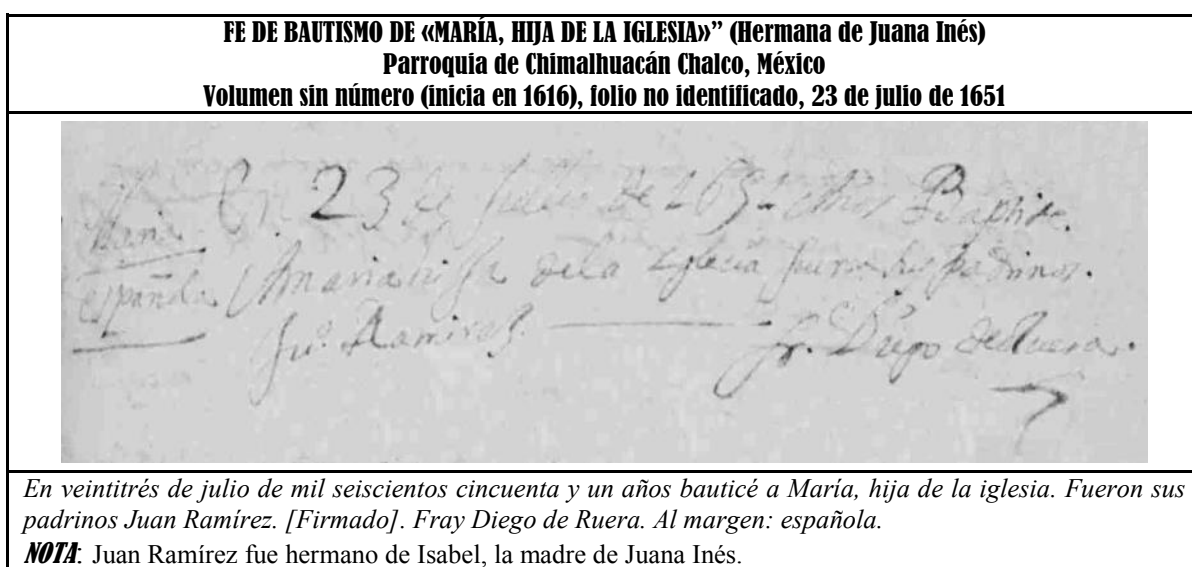 FE DE BAUTISMO DE «MARÍA, HIJA DE LA IGLESIA»” (Hermana de Juana Inés)
Parroquia de Chimalhuacán Chalco, México
Volumen sin número (inicia en 1616), folio no identificado, 23 de julio de 1651
En 23 de Julio de 1651 años Baptise.
Maria
Maria hija de la iglesia fueron sus padrinos.
española
Ju.º Ramires. Fr. Diego de Ruera.
En veintitrés de julio de mil seiscientos cincuenta y un años bauticé a María, hija de la iglesia. Fueron sus
padrinos Juan Ramírez. [Firmado]. Fray Diego de Ruera. Al margen: española.
NOTA: Juan Ramírez fue hermano de Isabel, la madre de Juana Inés.